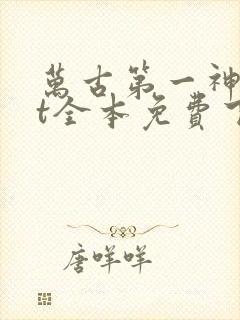 萬古第一神
t全本免費
唐咩咩